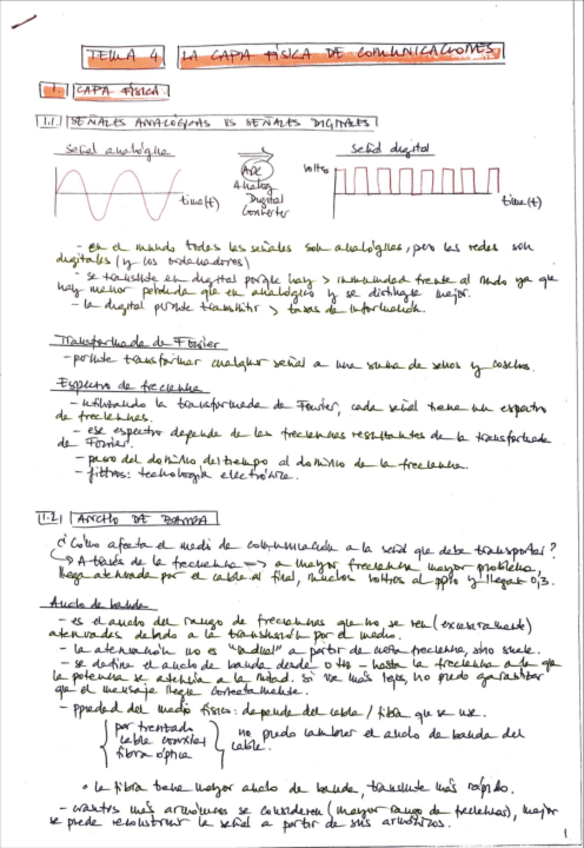 TEMA 4 LA CAPA FÍSICA DE COMUNICACIONES
1. CAPA FÍSICA
1.1 SEÑALES ANALÓGICAS VS SEÑALES DIGITALES
señal analógica
señal digital
ADC
Analog
Digital
Converter
time(t)
volts
time(t)
- en el mundo todas las señales son analógicas, pero las redes son
digitales (y los ordenadores)
- se transmite en digital porque hay > inmunidad frente al ruido ya que
hay menor pérdida que en analógico y se distingue mejor.
- la digital permite transmitir > tasas de información.
Transformada de Fourier
- permite transformar cualquier señal a una suma de senos y cosenos.
Espectro de frecuencia
- utilizando la transformada de Fourier, cada señal tiene un espectro
de frecuencias.
- ese espectro depende de las frecuencias resultantes de la transformada
de Fourier.
- paso del dominio del tiempo al dominio de la frecuencia.
- filtros: tecnología electrónica.
1.2 ANCHO DE BANDA
¿Cómo afecta el medio de comunicación a la señal que debe transportar?
A través de la frecuencia => a mayor frecuencia mayor problema,
llega atenuada por el cable al final, muchos voltios al ppio y llegan 0,3.
Ancho de banda
- es el ancho del rango de frecuencias que no se ven (excesivamente)
atenuadas debido a la transmisión por el medio.
- la atenuación no es "radical" a partir de cierta frecuencia, sino suave.
- se define el ancho de banda desde 0 Hz - hasta la frecuencia a la que
la potencia se atenúa a la mitad. Si me más lejos, no puedo garantizar
que el mensaje llegue correctamente.
- propiedad del medio físico: depende del cable / fibra que se use.
par trenzado
cable coaxial
fibra óptica
no puedo cambiar el ancho de banda del
cable.
• la fibra tiene mayor ancho de banda, transmite más rápido.
- cuantos más armónicos se consideren (mayor rango de frecuencias), mejor
se puede reconstruir la señal a partir de sus armónicos.
1